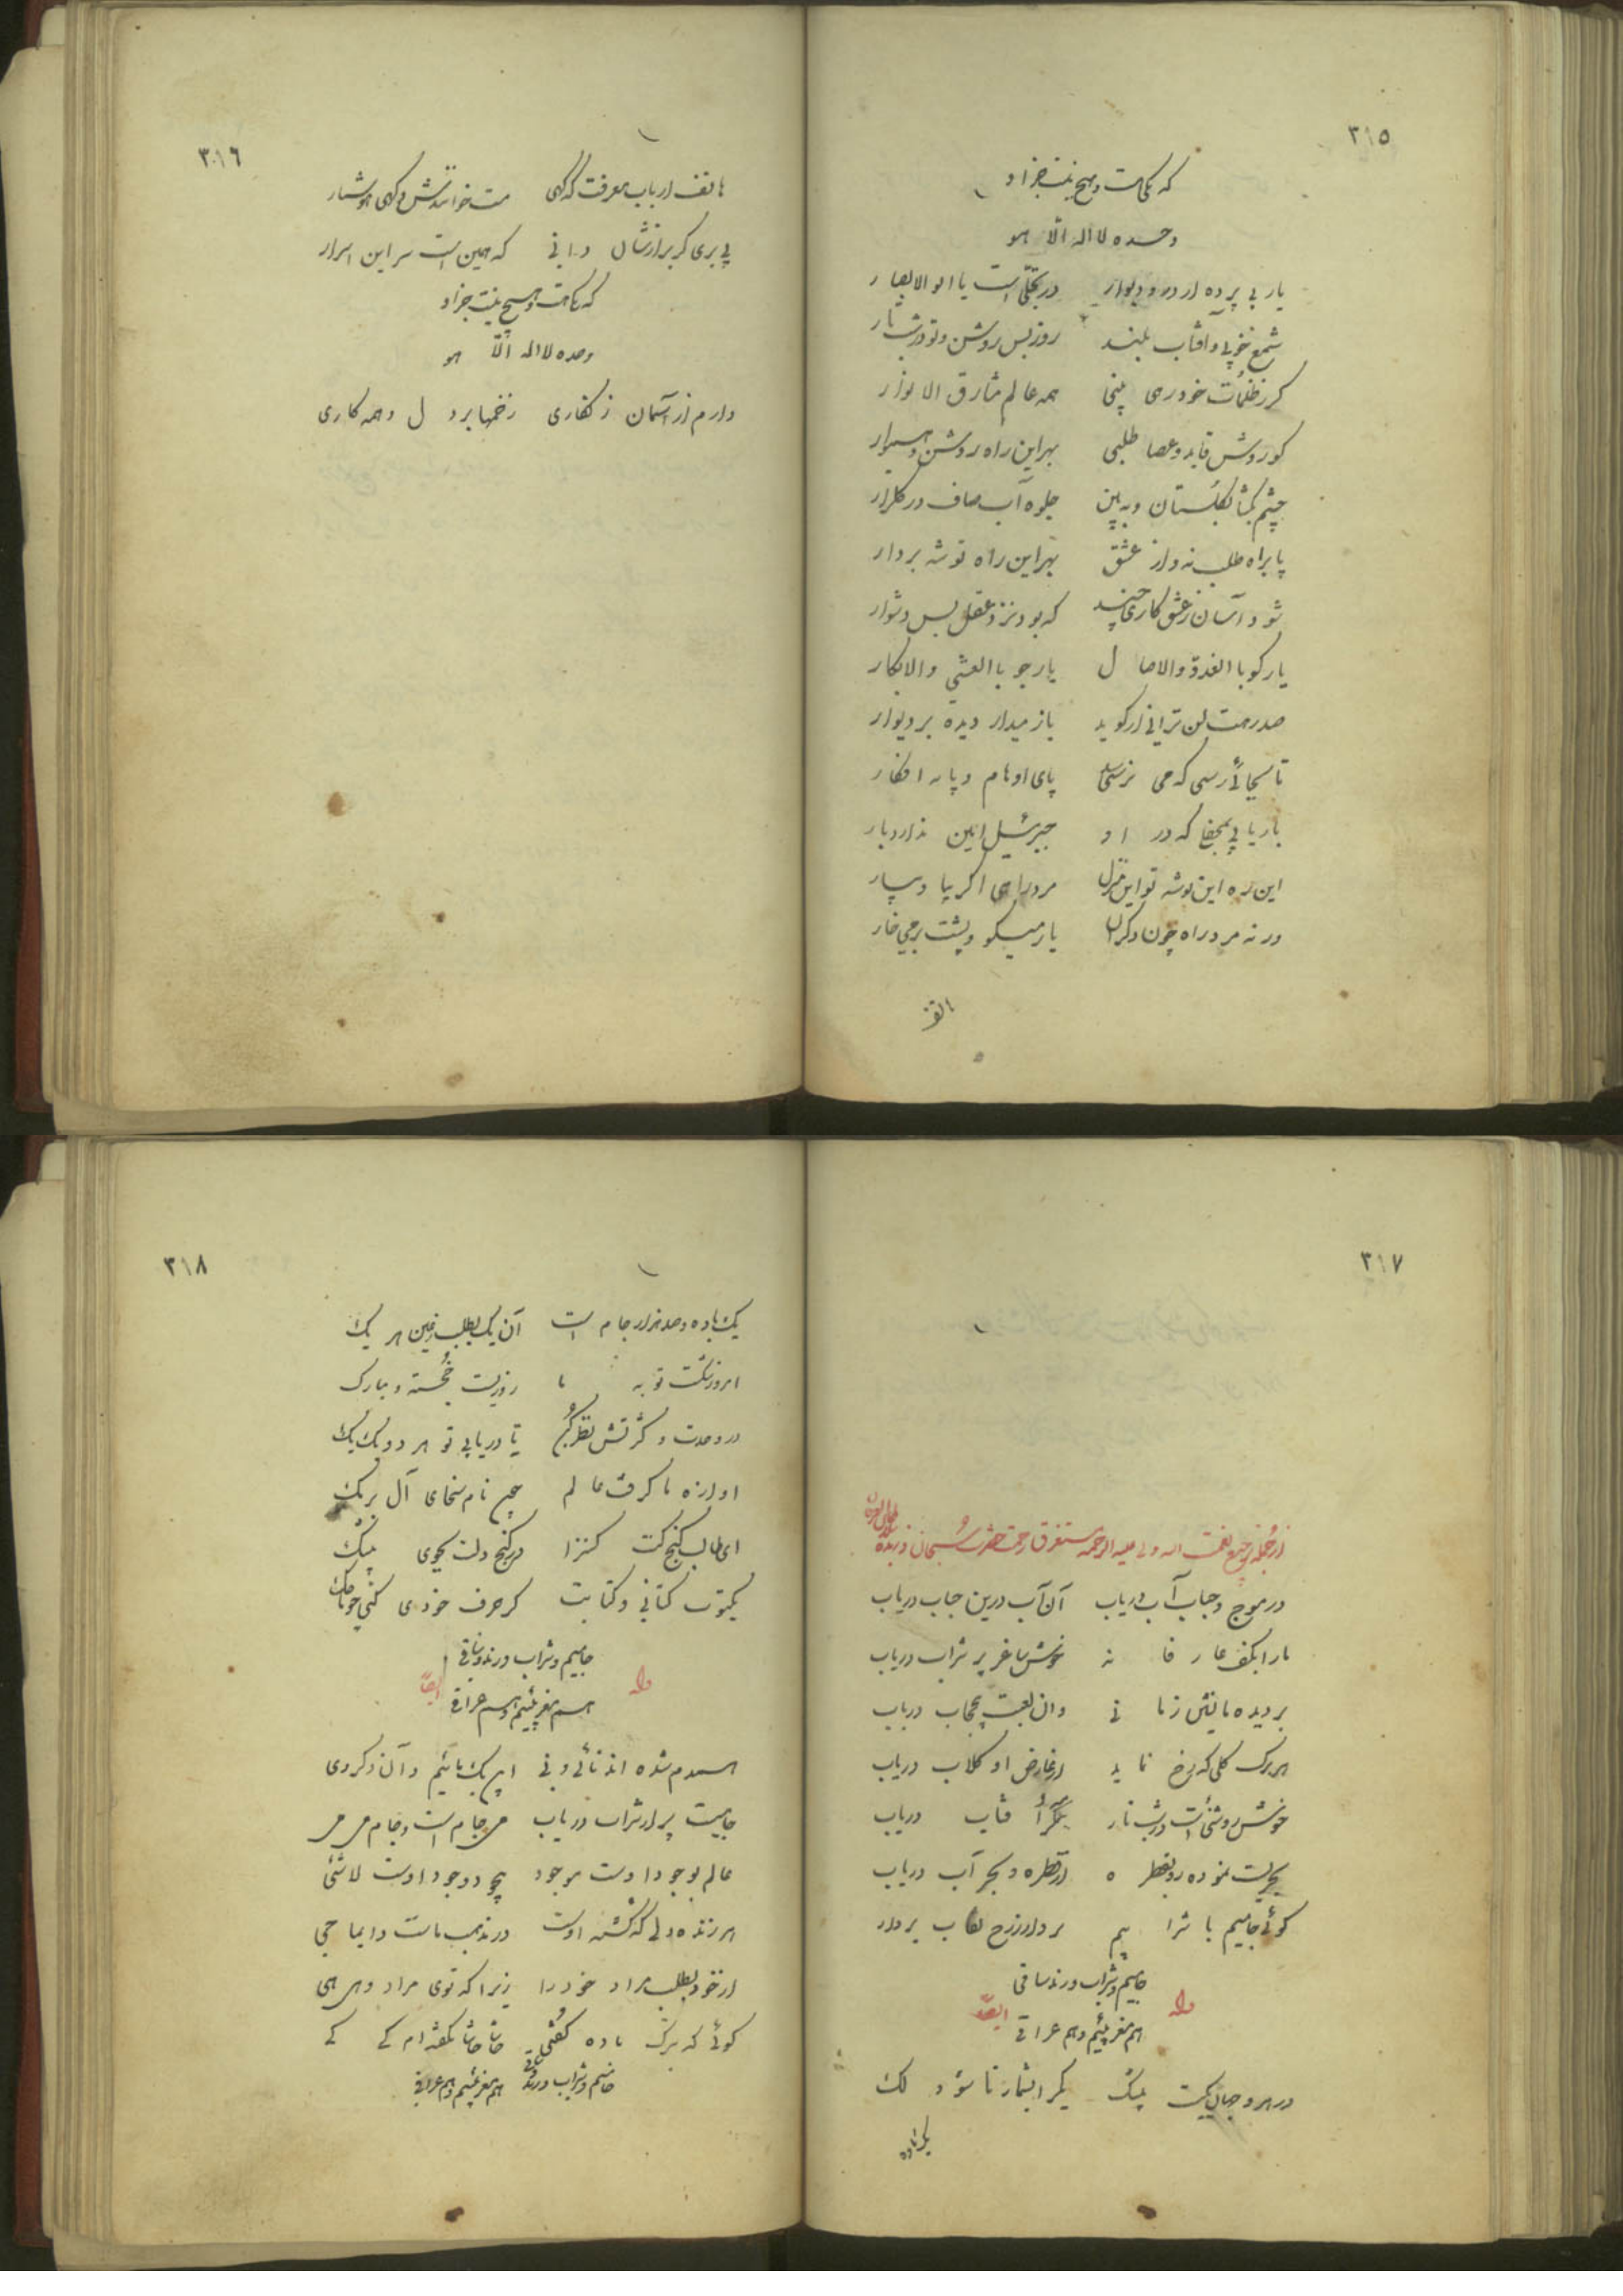 ٣١٥
که یکی هست و هیچ نیست جز او
وحده لا اله الّا هو
یار بی پرده از در و دیوار در تجلّی است یا اولو الابصار
شمع جوئی و آفتاب بلند روز بس روشن و تو در شب تار
گر ز ظلمات خود رهی بینی همه عالم مشارق الانوار
کوروش قاید و عصا طلبی بهر این راه روشن و هموار
چشم بگشا بگلستان و به بین جلوه آب صاف در گلزار
پا براه طلب نه و از عشق بهر این راه توشه بردار
شود آسان ز عشق کاری چند که بود نزد عقل بس دشوار
یار گو با الغدو والاصال یار جو با العشی والابکار
صد رهت لن ترانی ار گوید باز میدار دیده بر دیوار
تا بجائی رسی که می نرسد پای اوهام و پایه افکار
بار یابی بمحفلی که در او جبرئیل امین ندارد بار
این ره این توشه تو این منزل مرد راهی اگر بیا و بیار
ور نه مرد راه چون دگران یار میگو و پشت سر می خار
هاتف
٣١٦
هاتف ارباب معرفت که گهی مست خوانندش و گهی هوشیار
پی بری گر برازشان دانی که همین است سر این اسرار
که یکی هست و هیچ نیست جز او
وحده لا اله الّا هو
دارم از آسمان زنگاری زخمها بر دل و همه کاری
٣١٧
از جمله ترجیع نعمت الله ولی علیه الرحمه مستغرق رحمت حضرت سبحان
در موج و حباب آب دریاب آن آب درین حباب دریاب
ما را بکف عارفانه خوش ساغر پر شراب دریاب
بر دیده ما نشین زمانی وان لعبت بیحجاب دریاب
هر برگ گلی که رخ نماید از عارض او گلاب دریاب
خوش روشنی است در شب تار بنگر آفتاب دریاب
بحریست نموده رو بقطره از قطره و بحر آب دریاب
گوئی جامیم یا شرابیم بردار ز رخ نقاب بردار
جامیم و شراب و رند و ساقی
وله ایضاً
هم مغربیئیم و هم عراقی
در هر دو جهان یکیست بیشک یکرا بشمار تا شود لک
یک باده
٣١٨
یک باده و صد هزار جام است آن یک بطلب ز عین هر یک
امروز شکست توبه ما روزیست خجسته و مبارک
در وحدت و کثرتش نظر کن تا دریابی تو هر دو یک یک
اوازه ما گرفت عالم چون نام سخای آل برمک
ای طالب گنج کنت کنزا در گنج دلت بجوی بیشک
مکتوب کتابی و کتابت گر حرف خودی کنی چو ما حک
جامیم و شراب و رند و ساقی
وله ایضاً
هم مغربیئیم و هم عراقی
همدم شده اند نائی و نی این یک مائیم و آن دگر وی
جامیست پر از شراب دریاب می جام است و جام می می
عالم بوجود اوست موجود بی وجود اوست لاشئی
هر زنده دلی که کشته اوست در مذهب ماست دایما حی
از خود بطلب مراد خود را زیرا که توی مراد و هی هی
گوئی که بترک باده گفتی حاشا حاشا نگفته ام کے کے
جامیم و شراب و رند و ساقی هم مغربیئیم و هم عراقی